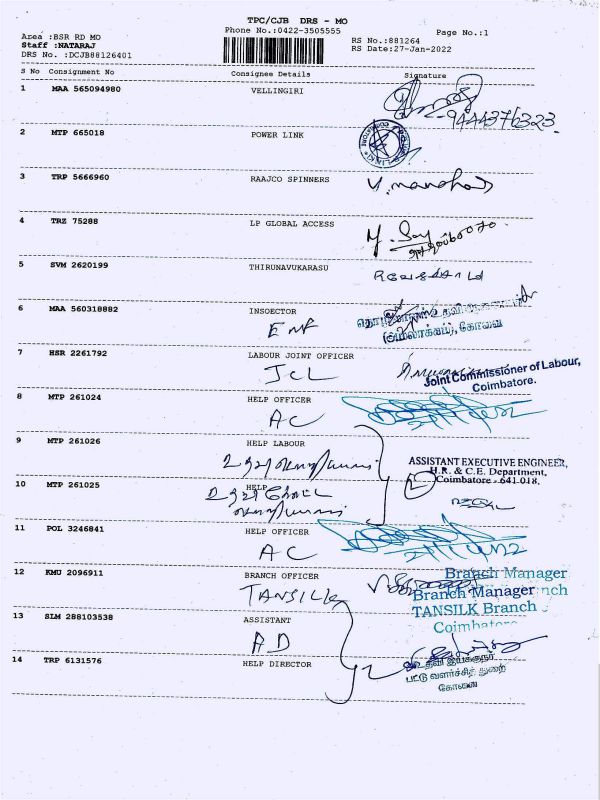 TPC/CJB DRS - MO
Phone No.:0422-3505555
Page No.:1
Area :BSR RD MO
RS No.:881264
Staff :NATARAJ
RS Date:27-Jan-2022
DRS No. :DCJB88126401
S No Consignment No Consignee Details Signature
1 MAA 565094980 VELLINGIRI
9444376323
2 MTP 665018 POWER LINK
3 TRP 5666960 RAAJCO SPINNERS
4 TRZ 75288 LP GLOBAL ACCESS
5 SVM 2620199 THIRUNAVUKARASU
6 MAA 560318882 INSOECTOR
(அமலாக்கம்), கோவை
7 HSR 2261792 LABOUR JOINT OFFICER
JCL
Joint Commissioner of Labour,
Coimbatore.
8 MTP 261024 HELP OFFICER
AC
9 MTP 261026 HELP LABOUR
ASSISTANT EXECUTIVE ENGINEER,
H.R. & C.E. Department,
Coimbatore - 641 018.
10 MTP 261025 HELP
2
11 POL 3246841 HELP OFFICER
AC
12 KMU 2096911 BRANCH OFFICER
TANSILK
Branch Manager
Branch Manager
TANSILK Branch
Coimbatore
13 SLM 288103538 ASSISTANT
AD
14 TRP 6131576 HELP DIRECTOR
2
உதவி இயக்குநர்
பட்டு வளர்ச்சித் துறை
கோவை